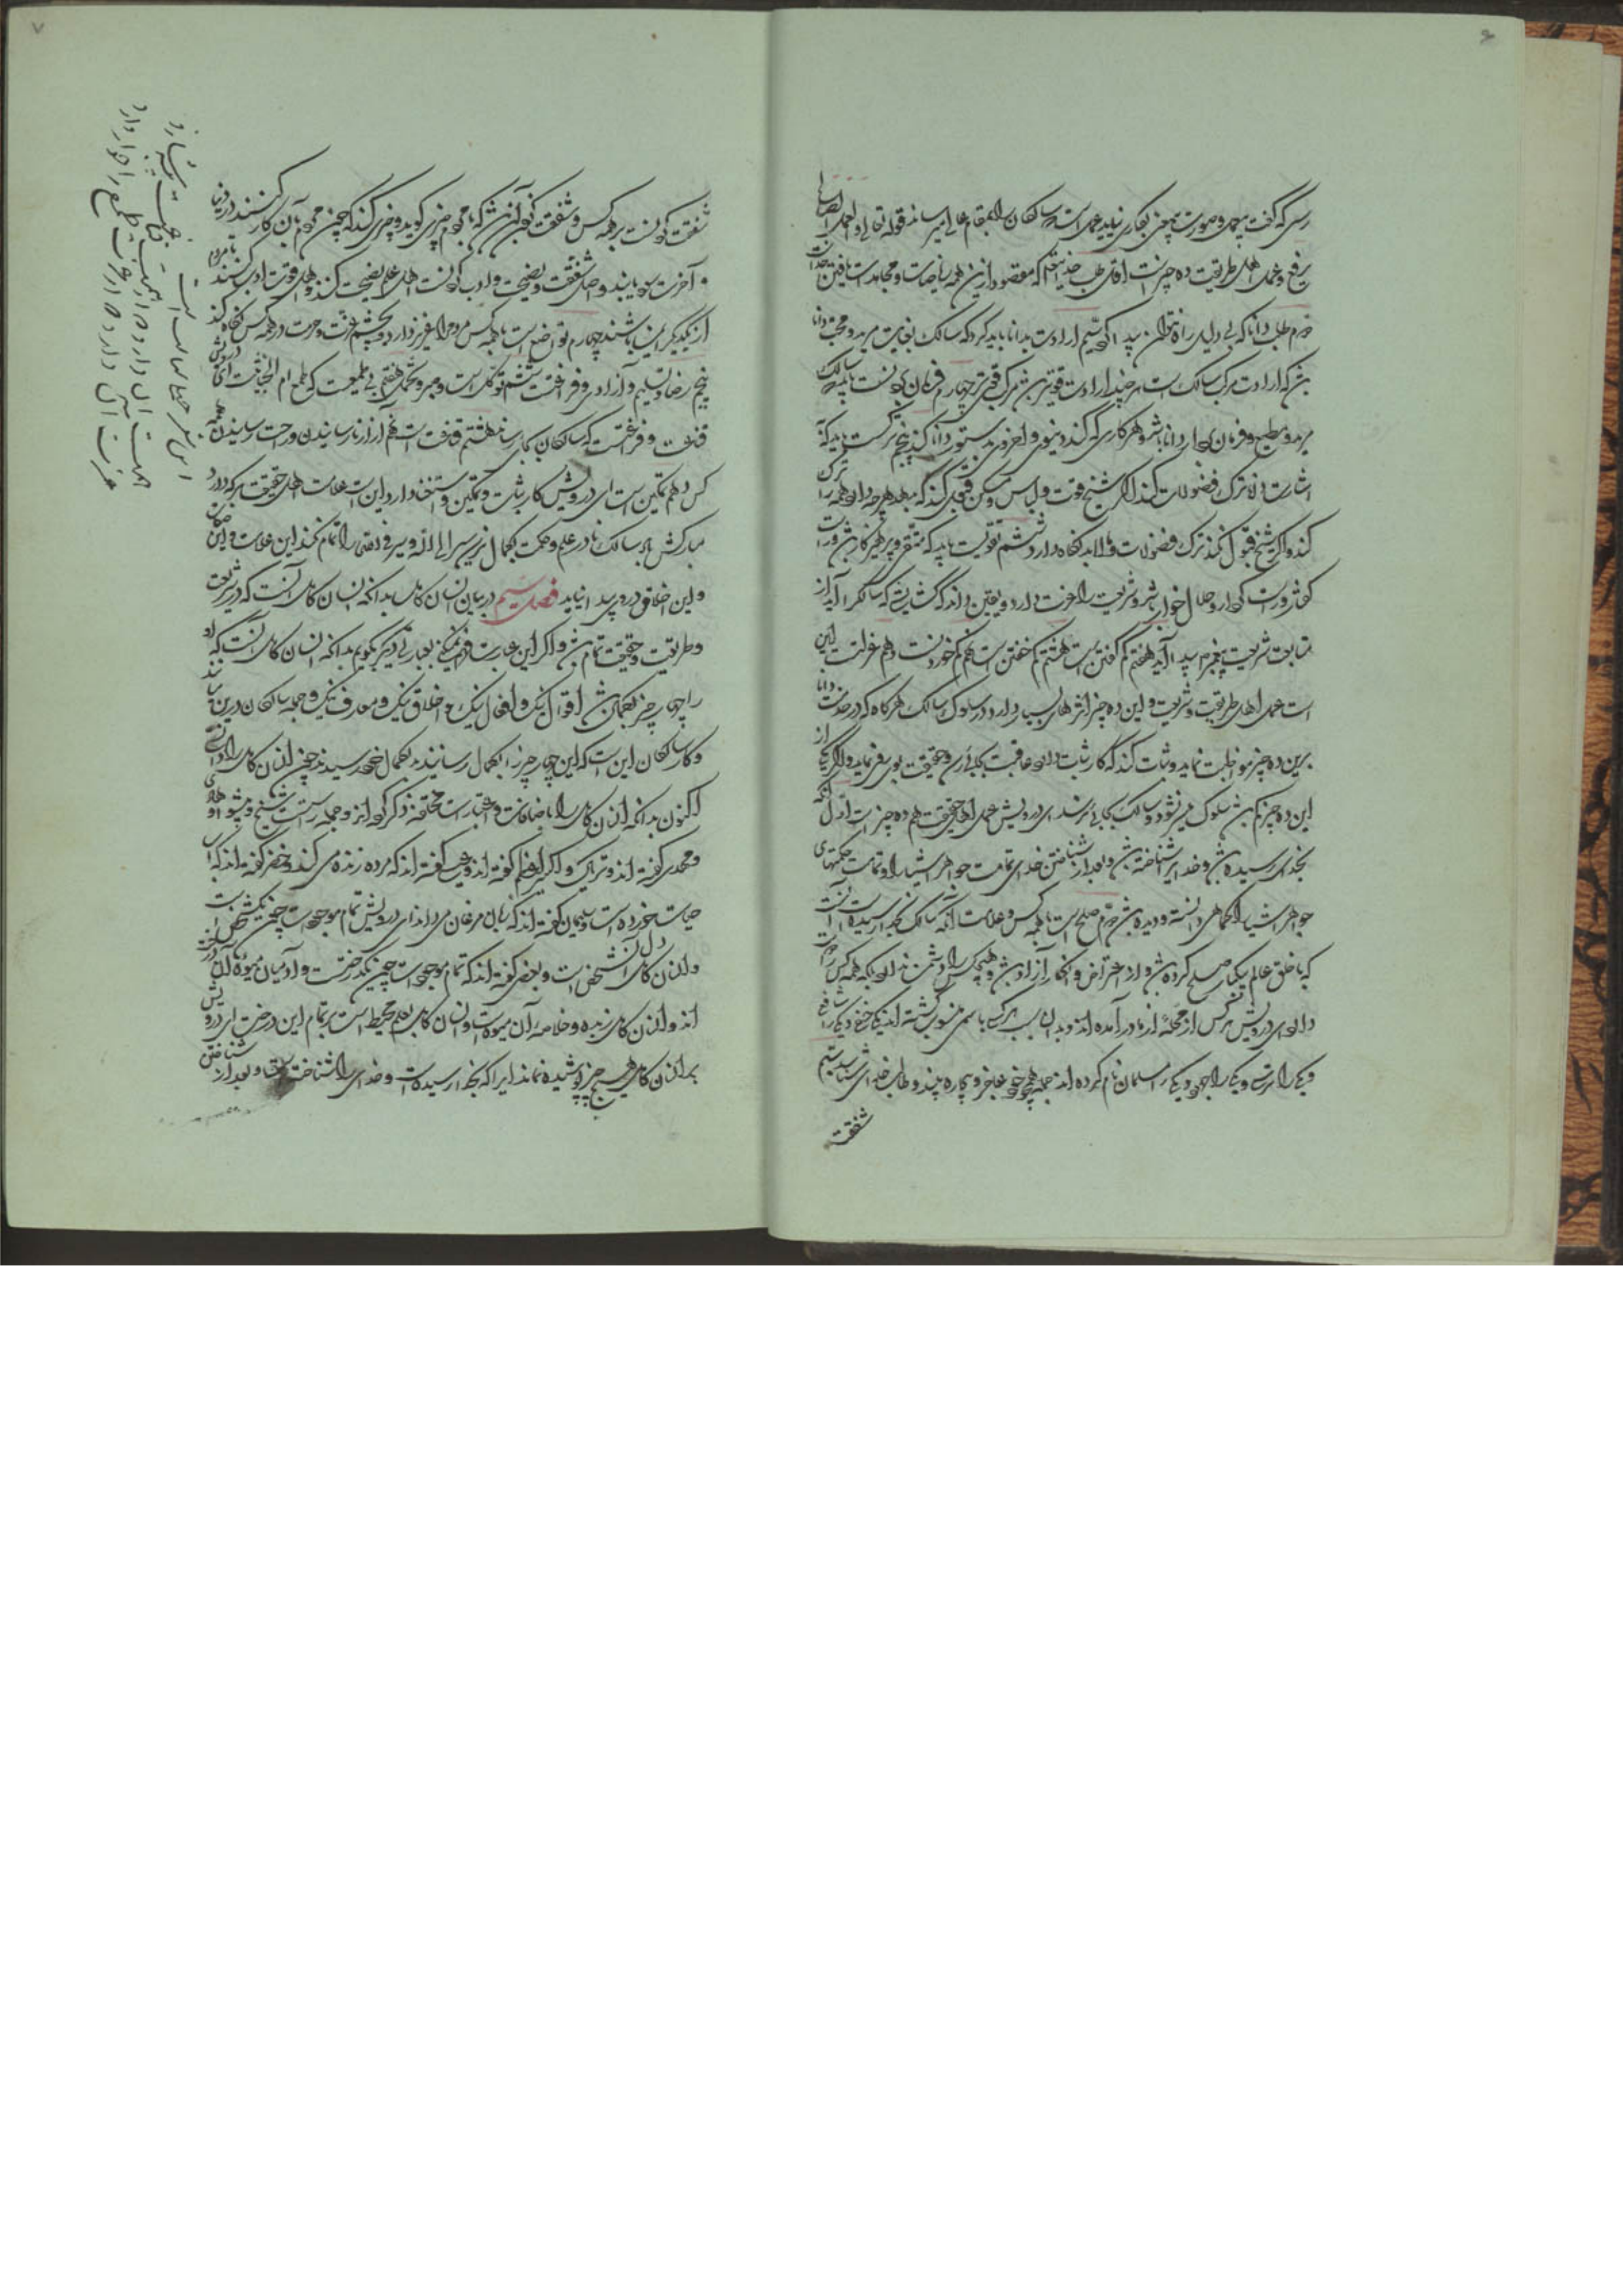 ۶
رسی که گفت بیعمل و صورت بیمعنی بکاری نیاید عمل است که سالکان را بمقام عالی میرساند قوله تعالی و العمل الصالح
یرفعه و عمل اهل طریقت ده چیزست اول طلب خدایتعالی که مقصود ازین همه ریاضات و مجاهدت یافتن خداست
دوم طلب دانا که بی دلیل راه نتوان پیدا کرد سیم ارادت بدانا باید که سالک بغایت مرید و محب دانا
بشد که ارادت مرکب سالک است هر چند ارادت قویتر بشد مرکب قویتر چهارم فرمان بردنست باید که سالک
مرید و مطیع و فرمان بردار دانا باشد و هر کاری که کند دنیوی و اخروی بدستور دانا کند پنجم ترکست باید که
اشارت دانا ترک فضولات کند اگر شیخ قوت و لباس و مسکن قبول کند که بدهد هرچه دارد همه را ترک
کند و اگر شیخ قبول نکند ترک فضولات و مالابد نگاه دارد ششم تقویست باید که متقی و پرهیزکار بشد و راست
گفتار و راست کردار و حلال خوار بشد و شریعت را عزت دارد و یقین داند که گشایشی که سالک را آید از
متابعت شریعت پیغمبر پیدا آید هفتم کم گفتن است هشتم کم خفتن است نهم کم خوردنست دهم عزلت این
است عمل اهل طریقت و شریعت و این ده چیز اثرهای بسیار دارد در سلوک سالک هرگاه که در خدمت دانا
برین ده چیز مواظبت نماید و ثبات کند که کار ثبات دارد عاقبت بجائی رسد و حقیقت بوی رو نماید و اگر یکی از
این ده چیز کم بشد سلوک میسر نشود و سالک بجائی نرسد ای درویش عمل اهل حقیقت هم ده چیز است اول آنکه
بخدای رسیده بشد و خدایرا شناخته بشد و بعد از شناختن خدای تمامت جواهر اشیا را و تمامت حکمتهای
جواهر اشیا را کماهی دانسته و دیده بشد دوم صلح است با همه کس و علامت آنکه سالک بخدا رسیده آنست
که با خلق عالم بیکبار صلح کرده بشد و از اعتراض و انکار آزاد بشد و هیچکس را دشمن ندارد بلکه همه کس را دوست
دارد ای درویش هر کس از محله از مادر آمده اند و بدان سبب هر یک باسمی منسوب گشته اند یکی حنفی و یکی شافعی
و یکی را ترسا و یکی را جهود و یکی را مسلمان نام کرده اند جمله را همچو خود عاجز و بیچاره بیند و طالب خدای شناسد سیم
شفقت
۷
شفقت کردنست بر همه کس و شفقت کردن آن بشد که با مردم چیزی گوید و چیزی کند که چون مردم بآن کار کنند در دنیا
و آخرت سود یابند و اصل شفقت نصیحت و ادب کردنست اهل علم نصیحت کنند و اهل قوت ادب کنند تا مردم
از یکدیگر ایمن باشند چهارم تواضع است با همه کس مردم را عزیز دارد و بچشم عزت و حرمت در همه کس نگاه کند
پنجم رضا و تسلیم و آزادی و فراغت ششم توکل است و صبر و تحمل هفتم بی طمعیست که طمع ام الخبائث است ای درویش
قناعت و فراغتست که سالکان بکار رساند هشتم قناعت است نهم آزار نارسانیدن و راحت رسانیدن بهمه
کس دهم تمکین است ای درویش کار ثبات و تمکین و استقامت دارد این است علامت اهل حقیقت هر که دارد
مبارکش باد سالک تا در علم و حکمت بکمال نرسد سیر الی الله و سیر فی الله را تمام نکند این علامت و این صفات
و این اخلاق در وی پیدا نیاید فصل سیم در بیان انسان کامل بدانکه انسان کامل آنست که در شریعت
و طریقت و حقیقت تمام بشد و اگر این عبارت فهم نمیکنی بعبارتی دیگر بگویم بدانکه انسان کامل آنست که او
را چهار چیز بکمال بشد اقوال نیک و افعال نیک و اخلاق نیک و معارف نیک و جمله سالکان درین کارند
و کار سالکان این است که این چهار چیز را بکمال رسانند بکمال خود رسیدند چون انسان کامل را دانستی
اکنون بدانکه انسان کامل را باضافات و اعتبارات مختلفه ذکر کرده اند و جمله راست است شیخ و پیشوا و هادی
و مهدی گفته اند و تریاق و اکسیر اعظم گفته اند و عیسی گفته اند که مرده زنده می کند و خضر گفته اند که آب
حیات خورده است و سلیمان گفته اند که زبان مرغان می داند ای درویش تمام موجودات چون یک شخص است
و انسان کامل دل آن شخص است و بعضی گفته اند که تمام موجودات چون یک درخت است و آدمیان میوه آن درخت
اند و انسان کامل زبده و خلاصه آن میوه است و انسان کامل بعلم محیط است بر تمام این درخت ای درویش
بر انسان کامل هیچ چیز پوشیده نماند زیرا که بخدا رسیده است و خدای را شناخت و بعد از شناختن